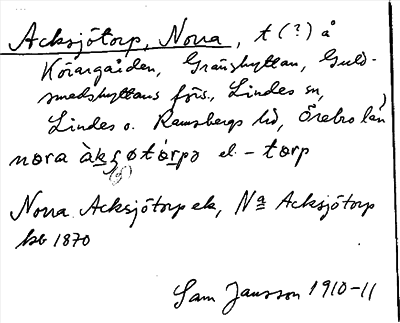 Acksjötorp, Norra, t (?) å
Körargården, Gränshyttan, Guld-
smedshyttans förs., Lindes sn,
Lindes o. Ramsbergs hd, Örebro län
nora àksøtórpɔ el. -torp
(s)
Norra Acksjötorp ek, Na Acksjötorp
kb 1870
Sam Jansson 1910-11